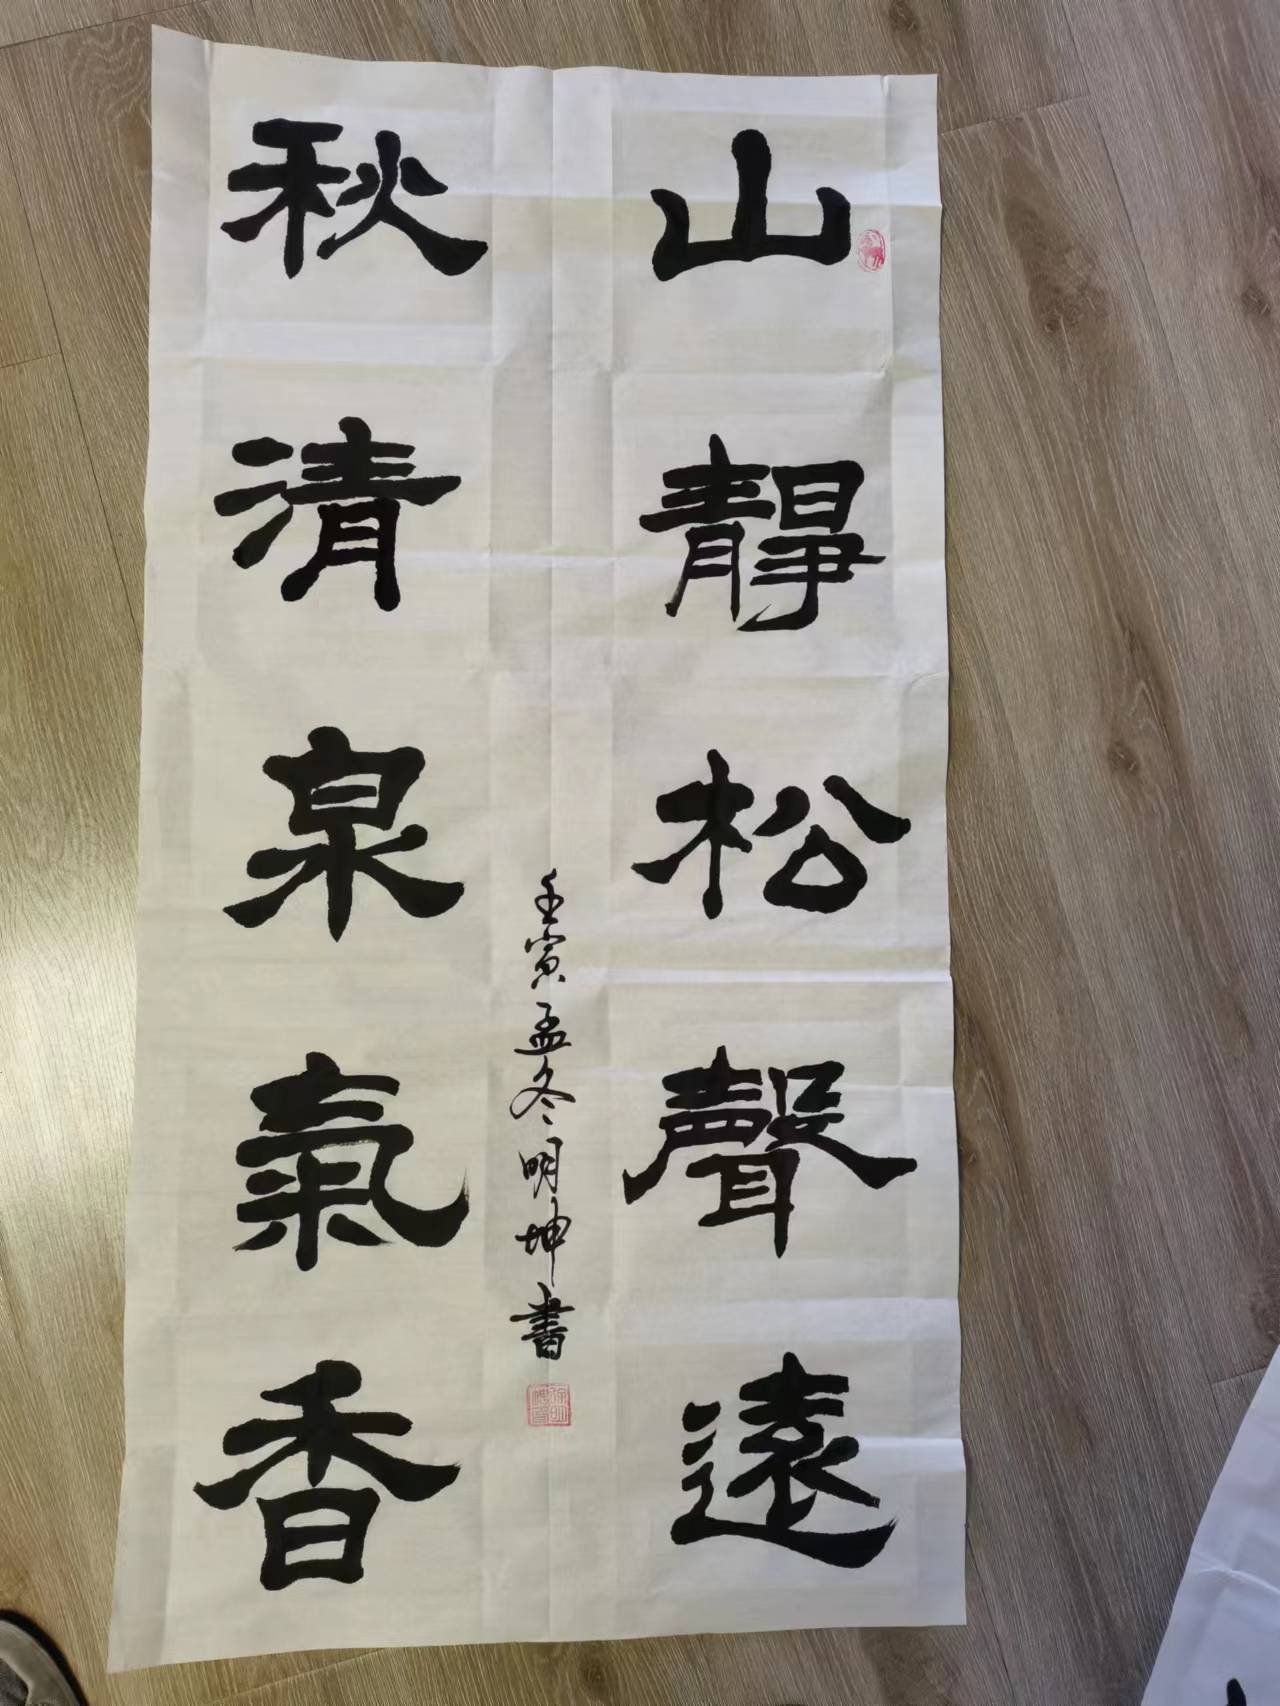 山靜松聲遠
秋清泉氣香
壬寅孟冬明坤書